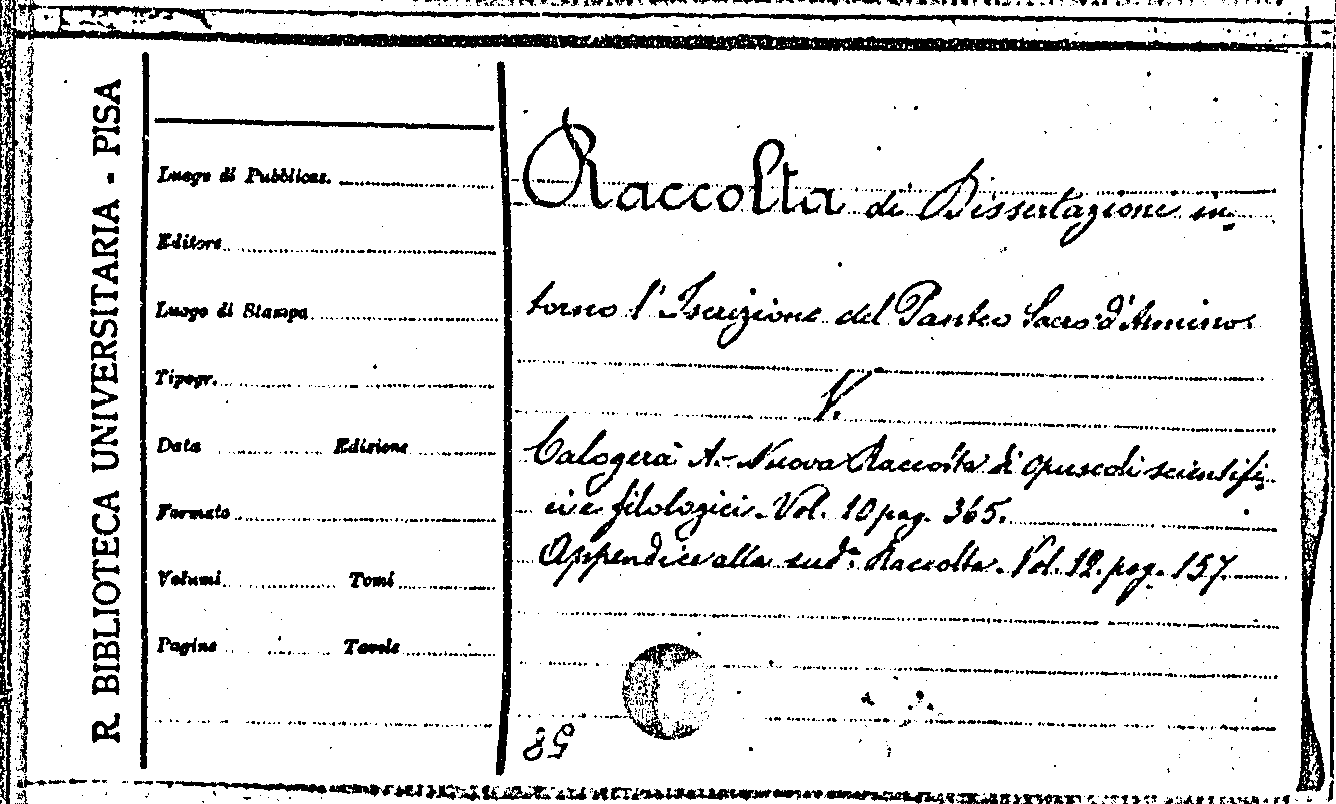 R. BIBLIOTECA UNIVERSITARIA - PISA
Luogo di Pubblicaz.
Editore
Luogo di Stampa
Tipogr.
Data Edizione
Formato
Volumi Tomi
Pagine Tavole
Raccolta di Dissertazioni in-
torno l'Iscrizione del Panteo Sacro d'
V.
Calogerà A. - Nuova Raccolta di opuscoli scientifi-
ci e filologici. Vol. 10 pag. 365.
Appendice alla sudª. Raccolta. Vol. 12. pag. 157.